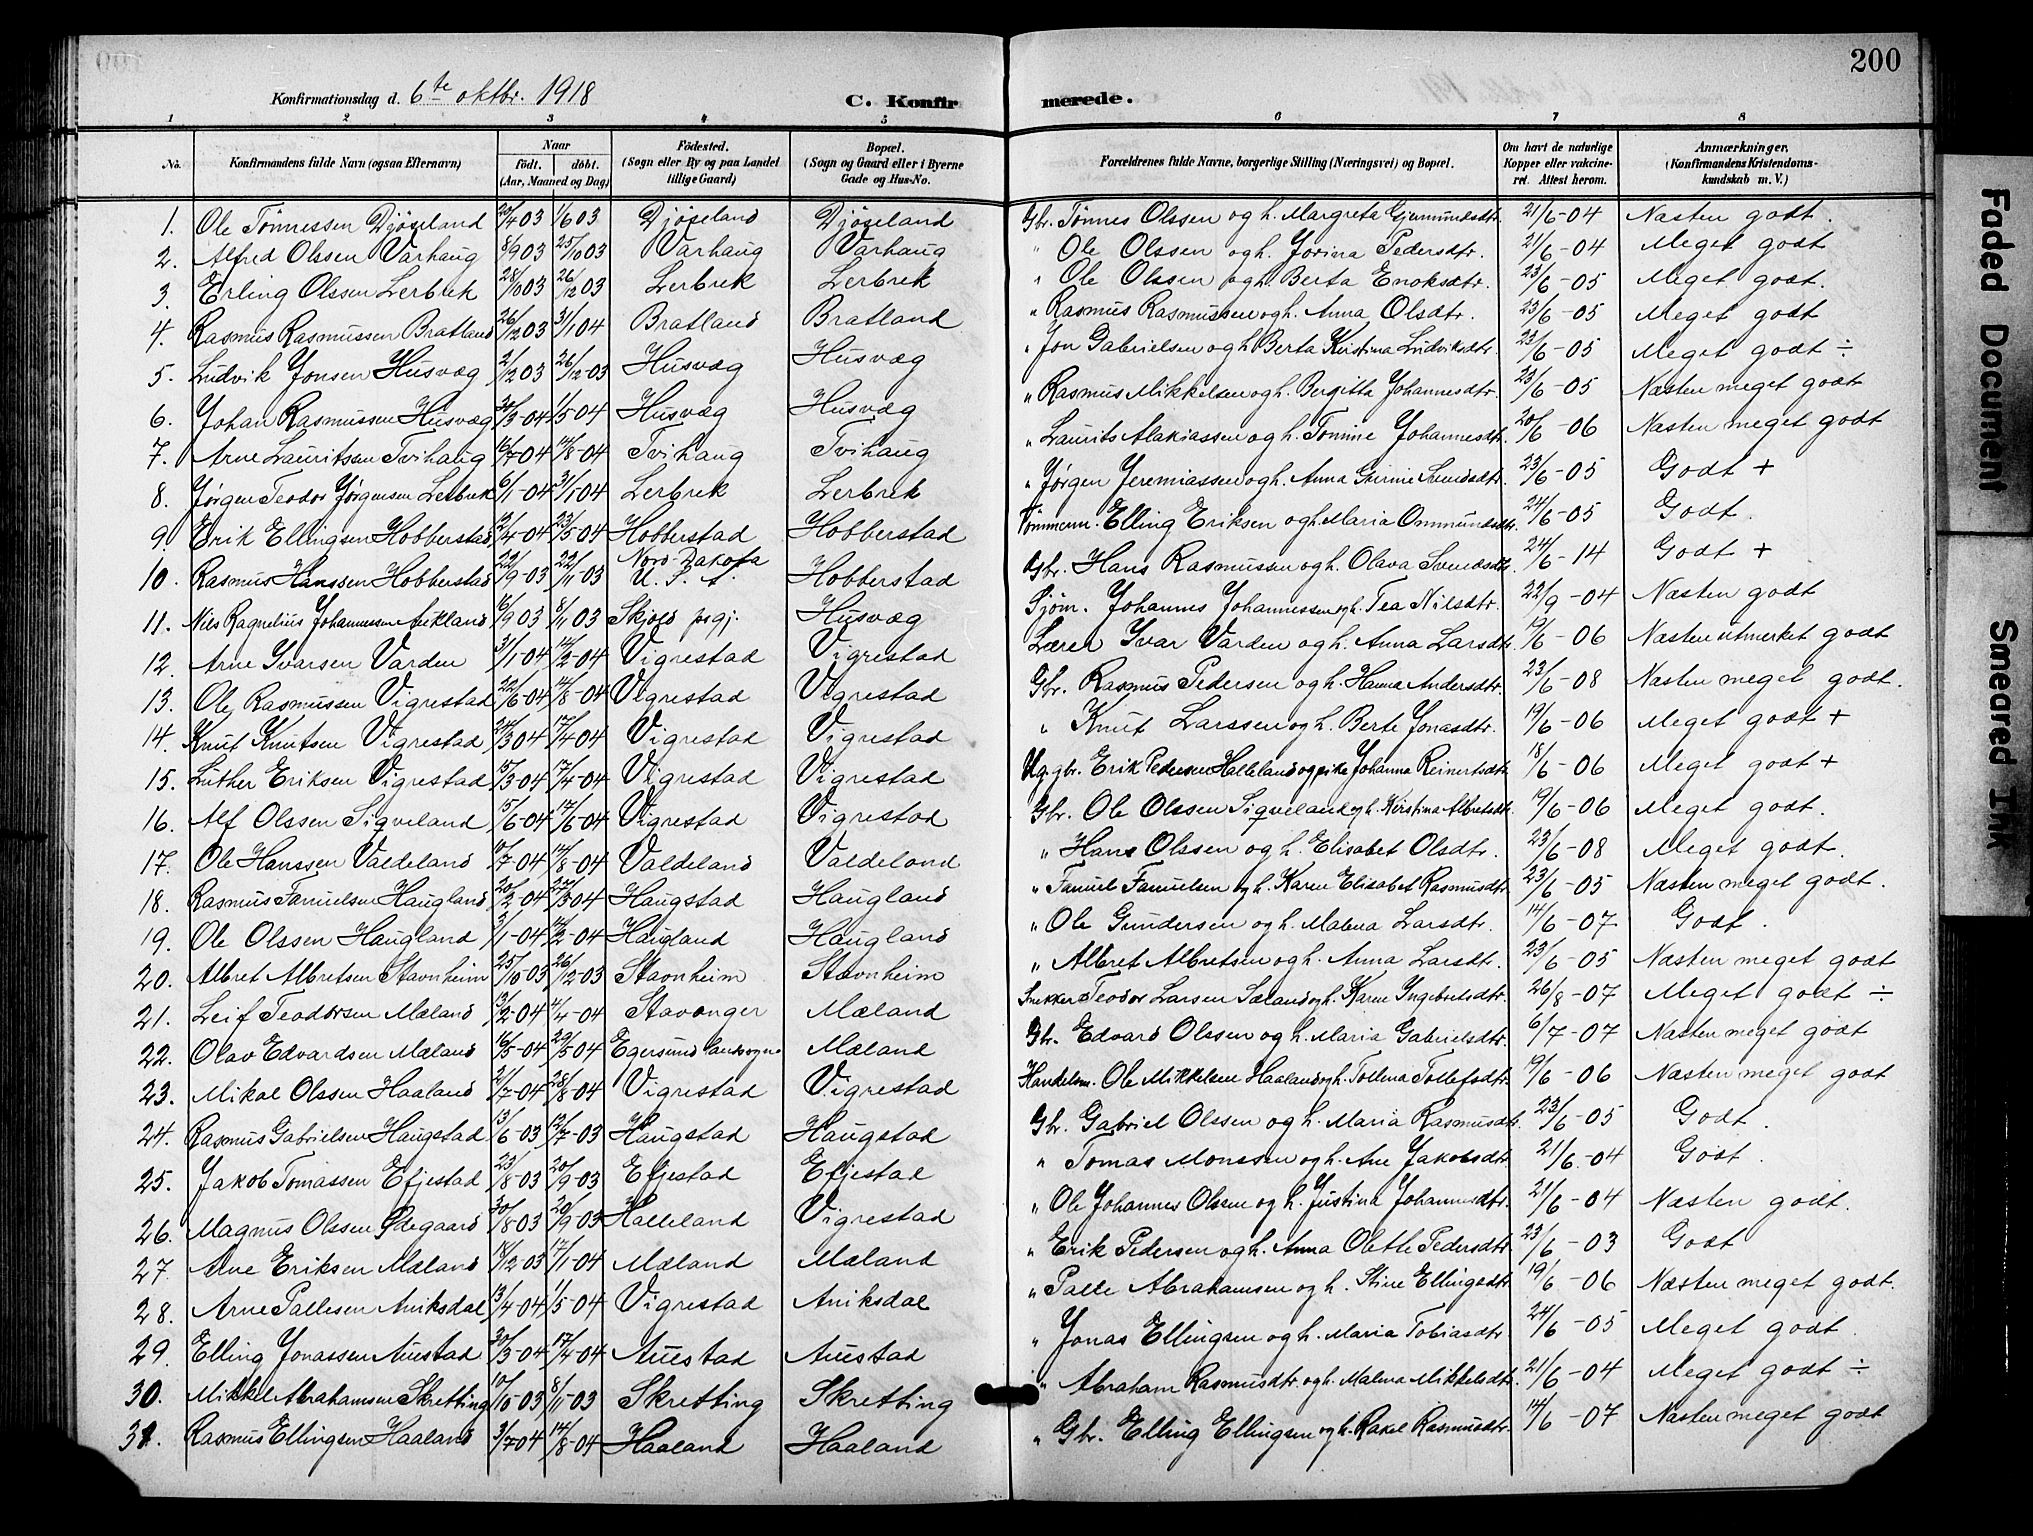 200
Konfirmationsdag d. 6te oktbr. 1918 C. Konfirmerede.
1 2 3 4 5 6 7 8
No. Konfirmandens fulde Navn (ogsaa Efternavn) Naar födt. döbt. (Aar, Maaned og Dag) Födested. (Sogn eller By og paa Landet tillige Gaard) Bopæl. (Sogn og Gaard eller i Byerne Gade og Hus-No. Forældrenes fulde Navne, borgerlige Stilling (Næringsvei) og Bopæl. Om havt de naturlige Kopper eller vakcineret. Attest herom. Anmærkninger. (Konfirmandens Kristendomskundskab m. V.)
1. Ole Tönnessen Djöseland 20/4 03 1/6 03 Djöseland Djöseland Gbr. Tönnes Olssen og h. Margreta Gjermundsdtr. 21/6-04 Næsten godt.
2. Alfred Olssen Varhaug 8/9 03 25/10 03 Varhaug Varhaug " Ole Olssen og h. Jorina Pedersdtr. 21/6-04 Meget godt
3. Erling Olssen Lerbrek 28/10 03 26/12 03 Lerbrek Lerbrek " Ole Olssen og h. Berta Enoksdtr. 23/6-05 Meget godt.
4. Rasmus Rasmussen Bratland 26/12 03 31/1 04 Bratland Bratland " Rasmus Rasmussen og h. Anna Olsdtr. 23/6-05 Meget godt
5. Ludvik Jonsen Husvæg 2/12 03 26/12-03 Husvæg Husvæg " Jon Gabrielsen og h Berta Kristina Ludviksdtr. 23/6-05 Meget godt ÷
6. Johan Rasmussen Husvæg /3-04 1/5 04 Husvæg Husvæg " Rasmus Mikkelsen og h. Bergitta Johannesdtr. 23/6-05 Næsten meget godt
7. Arne Lauritsen Tvihaug 16/7-04 14/8-04 Tvihaug Tvihaug " Laurits Alakiassen og h. Tomine Johannesdtr. 20/6-06 Næsten meget godt
8. Jörgen Teodor Jörgensen Lerbrek 6/1-04 31/1 04 Lerbrek Lerbrek " Jörgen Jeremiassen og h. Anna Gurine Svendsdtr. 23/6-05 Godt +
9. Erik Ellingsen Hobberstad 12/4-04 23/5-04 Hobberstad Hobberstad Tömmerm. Elling Eriksen og h. Maria Ommundsdtr. 24/6-05 Godt.
10. Rasmus Hanssen Hobberstad 22/9-03 22/11-03 Nord-Dakota U. S. A. Hobberstad Gbr. Hans Rasmussen og h. Olava Svendsdtr. 24/6-14 Godt +
11. Nils Ragnelius Johannessen Aukland 16/9 03 8/11 03 Skjold prgj. Husvæg Sjöm. Johannes Johannessen og h. Tea Nilsdtr. 22/9-04 Næsten godt
12. Arne Ivarsen Varden 3/1-04 14/2-04 Vigrestad Vigrestad Lærer Ivar Varden og h. Anna Larsdtr. 19/6-06 Næsten utmerket godt
13. Ole Rasmussen Vigrestad 22/6-04 14/8-04 Vigrestad Vigrestad Gbr. Rasmus Pedersen og h. Hanna Andersdtr. 23/6-08 Næsten meget godt.
14. Knut Knutsen Vigrestad 24/3 04 17/4-04 Vigrestad Vigrestad " Knut Larssen og h. Berte Jonasdtr. 19/6-06 Meget godt +
15. Luther Eriksen Vigrestad 15/3-04 17/4-04 Vigrestad Vigrestad Ug. gbr. Erik Pedersen Halleland og pike Johanna Reinertsdtr. 18/6-06 Meget godt +
16. Alf Olssen Sigveland 15/5-04 14/6-04 Vigrestad Vigrestad Gbr. Ole Olssen Sigveland og h. Kirstina Albretsdtr. 19/6-06 Meget godt.
17. Ole Hanssen Valdeland 10/7-04 14/8-04 Valdeland Valdeland " Hans Olssen og h. Elisabet Olsdtr. 23/6-08 Meget godt.
18. Rasmus Fanuelsen Haugland 20/2-04 27/3 04 Haugstad Haugland " Fanuel Fanuelsen og h. Karen Elisabet Rasmusdtr. 23/6-05 Næsten meget godt.
19. Ole Olssen Haugland 3/1-04 14/2-04 Haugland Haugland " Ole Gundersen og h. Malena Larsdtr. 14/6-07 Godt.
20. Albret Albretsen Stavnheim 25/10 03 26/12-03 Stavnheim Stavnheim " Albret Albretsen og h. Anna Larsdtr. 23/6-05 Næsten meget godt
21. Leif Teodorsen Mæland 13/2-04 4/4-04 Stavanger Mæland Snekker Teodor Larsen Sæland og h. Karen Ingebretsdtr. 26/8-07 Meget godt ÷
22. Olav Edvardsen Mæland 16/5-04 29/5 04 Egersund landsogn Mæland Gbr. Edvard Olssen og h. Maria Gabrielsdtr. 6/7-07 Næsten meget godt
23. Mikal Olssen Haaland 2/7-04 28/8-04 Vigrestad Vigrestad Handelsm. Ole Mikkelsen Haaland og h. Tollena Tollefsdtr. 19/6-06 Næsten meget godt
24. Rasmus Gabrielsen Haugstad 13/6-03 12/7-03 Haugstad Haugstad Gbr. Gabriel Olssen og h. Maria Rasmusdtr. 23/6-05 Godt.
25. Jakob Tomassen Efjestad 23/8-03 20/9-03 Efjestad Efjestad " Tomas Monssen og h. Ane Jakobsdtr. 21/6-04 Godt.
26. Magnus Olssen Ödegaard 30/8-03 20/9-03 Halleland Vigrestad " Ole Johannes Olssen og h. Justina Johannesdtr. 21/6-04 Næsten godt.
27. Arne Eriksen Mæland 18/12-03 17/1-04 Mæland Mæland " Erik Pedersen og h. Anna Olette Pedersdtr. 23/6-03 Godt
28. Arne Pallesen Aniksdal 13/4-04 1/5-04 Vigrestad Aniksdal " Palle Abrahamsen og h. Stine Ellingsdtr. 19/6-06 Næsten meget godt.
29. Elling Jonassen Auestad 20/3-04 17/4-04 Auestad Auestad " Jonas Ellingsen og h. Maria Tobiasdtr. 24/6-05 Meget godt.
30. Mikkel Abrahamsen Skretting 10/10-03 8/11-03 Skretting Skretting " Abraham Rasmusdtr. og h. Malena Mikkelsdtr. 21/6-04 Meget godt ÷
31. Rasmus Ellingsen Haaland 3/7 04 14/8-04 Haaland Haaland " Gbr. Elling Ellingsen og h. Rakel Rasmusdtr. 14/6-07 Næsten meget godt
Faded Document
Smeared Ink